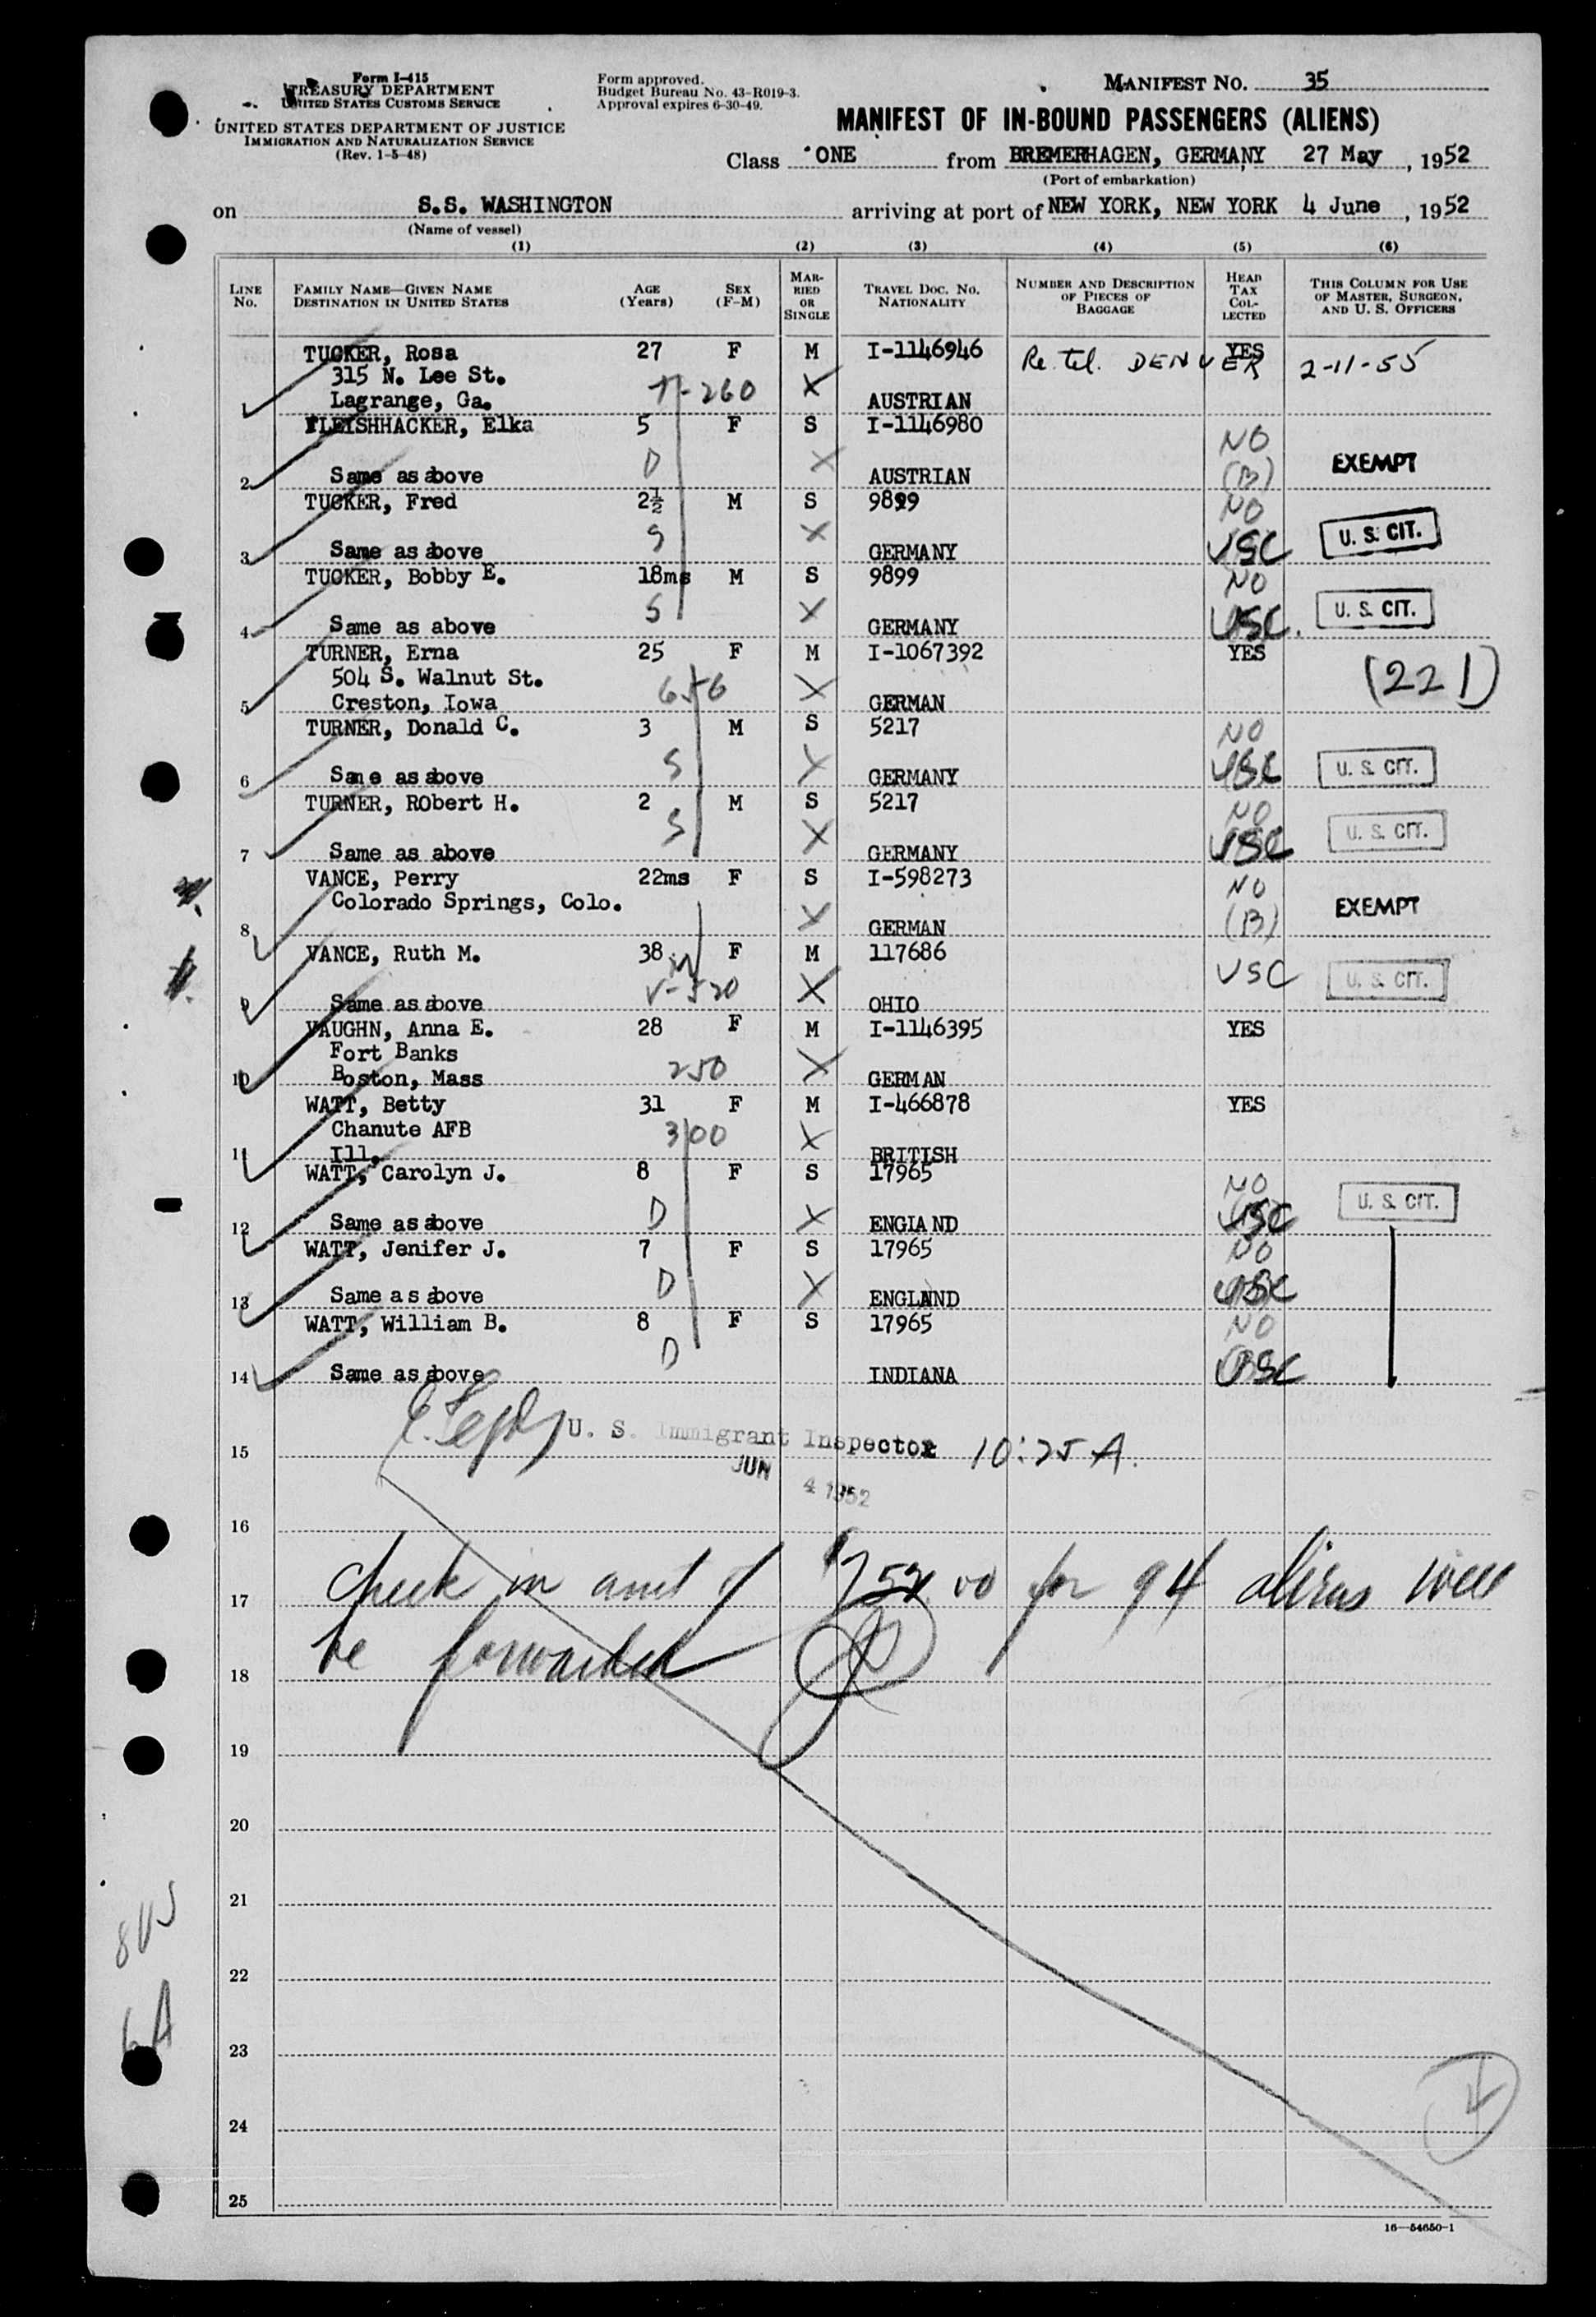 Form I-415
TREASURY DEPARTMENT
UNITED STATES CUSTOMS SERVICE
UNITED STATES DEPARTMENT OF JUSTICE
IMMIGRATION AND NATURALIZATION SERVICE
(Rev. 1-5-48)
Form approved.
Budget Bureau No. 43-R019-3.
Approval expires 6-30-49.
MANIFEST NO. 35
MANIFEST OF IN-BOUND PASSENGERS (ALIENS)
Class ONE from BREMERHAGEN, GERMANY, 27 May, 1952
(Port of embarkation)
on S.S. WASHINGTON arriving at port of NEW YORK, NEW YORK 4 June, 1952
(Name of vessel)
(1) (2) (3) (4) (5) (6)
LINE No. FAMILY NAME—GIVEN NAME DESTINATION IN UNITED STATES AGE (Years) SEX (F-M) MARRIED OR SINGLE TRAVEL DOC. NO. NATIONALITY NUMBER AND DESCRIPTION OF PIECES OF BAGGAGE HEAD TAX COLLECTED THIS COLUMN FOR USE OF MASTER, SURGEON, AND U. S. OFFICERS
TUCKER, Rosa 27 F M I-1146946 Re. tel. DENVER YES 2-11-55
315 N. Lee St. T-260 X
1 Lagrange, Ga. AUSTRIAN
FLEISHHACKER, Elka 5 F S I-1146980 NO
2 Same as above D X AUSTRIAN (B) EXEMPT
TUCKER, Fred 2½ M S 9899 NO
3 Same as above S X GERMANY USC U. S. CIT.
TUCKER, Bobby E. 18ms M S 9899 NO
4 Same as above S X GERMANY USC. U. S. CIT.
TURNER, Erna 25 F M I-1067392 YES
504 S. Walnut St. 656 X (221)
5 Creston, Iowa GERMAN
TURNER, Donald C. 3 M S 5217 NO
6 Same as above S X GERMANY USC U. S. CIT.
TURNER, RObert H. 2 M S 5217 NO
7 Same as above S X GERMANY USC U. S. CIT.
VANCE, Perry 22ms F S I-598273 NO
Colorado Springs, Colo.
8 X GERMAN (B) EXEMPT
VANCE, Ruth M. 38 F M 117686 USC U. S. CIT.
9 Same as above V-520 X OHIO
VAUGHN, Anna E. 28 F M I-1146395 YES
Fort Banks
10 Boston, Mass 250 X GERMAN
WATT, Betty 31 F M I-466878 YES
Chanute AFB 300 X
11 Ill. BRITISH
WATT, Carolyn J. 8 F S 17965 NO
12 Same as above D X ENGLAND USC U. S. CIT.
WATT, Jenifer J. 7 F S 17965 NO
13 Same as above D X ENGLAND USC
WATT, William B. 8 F S 17965 NO
14 Same as above D INDIANA USC
U. S. Immigrant Inspector 10:25 A.
15
JUN 4 1952
16
17 Check in amt of $752.00 for 94 aliens will
18 be forwarded
19
20
21
8US
22
6A
23
24
25
16—54650-1